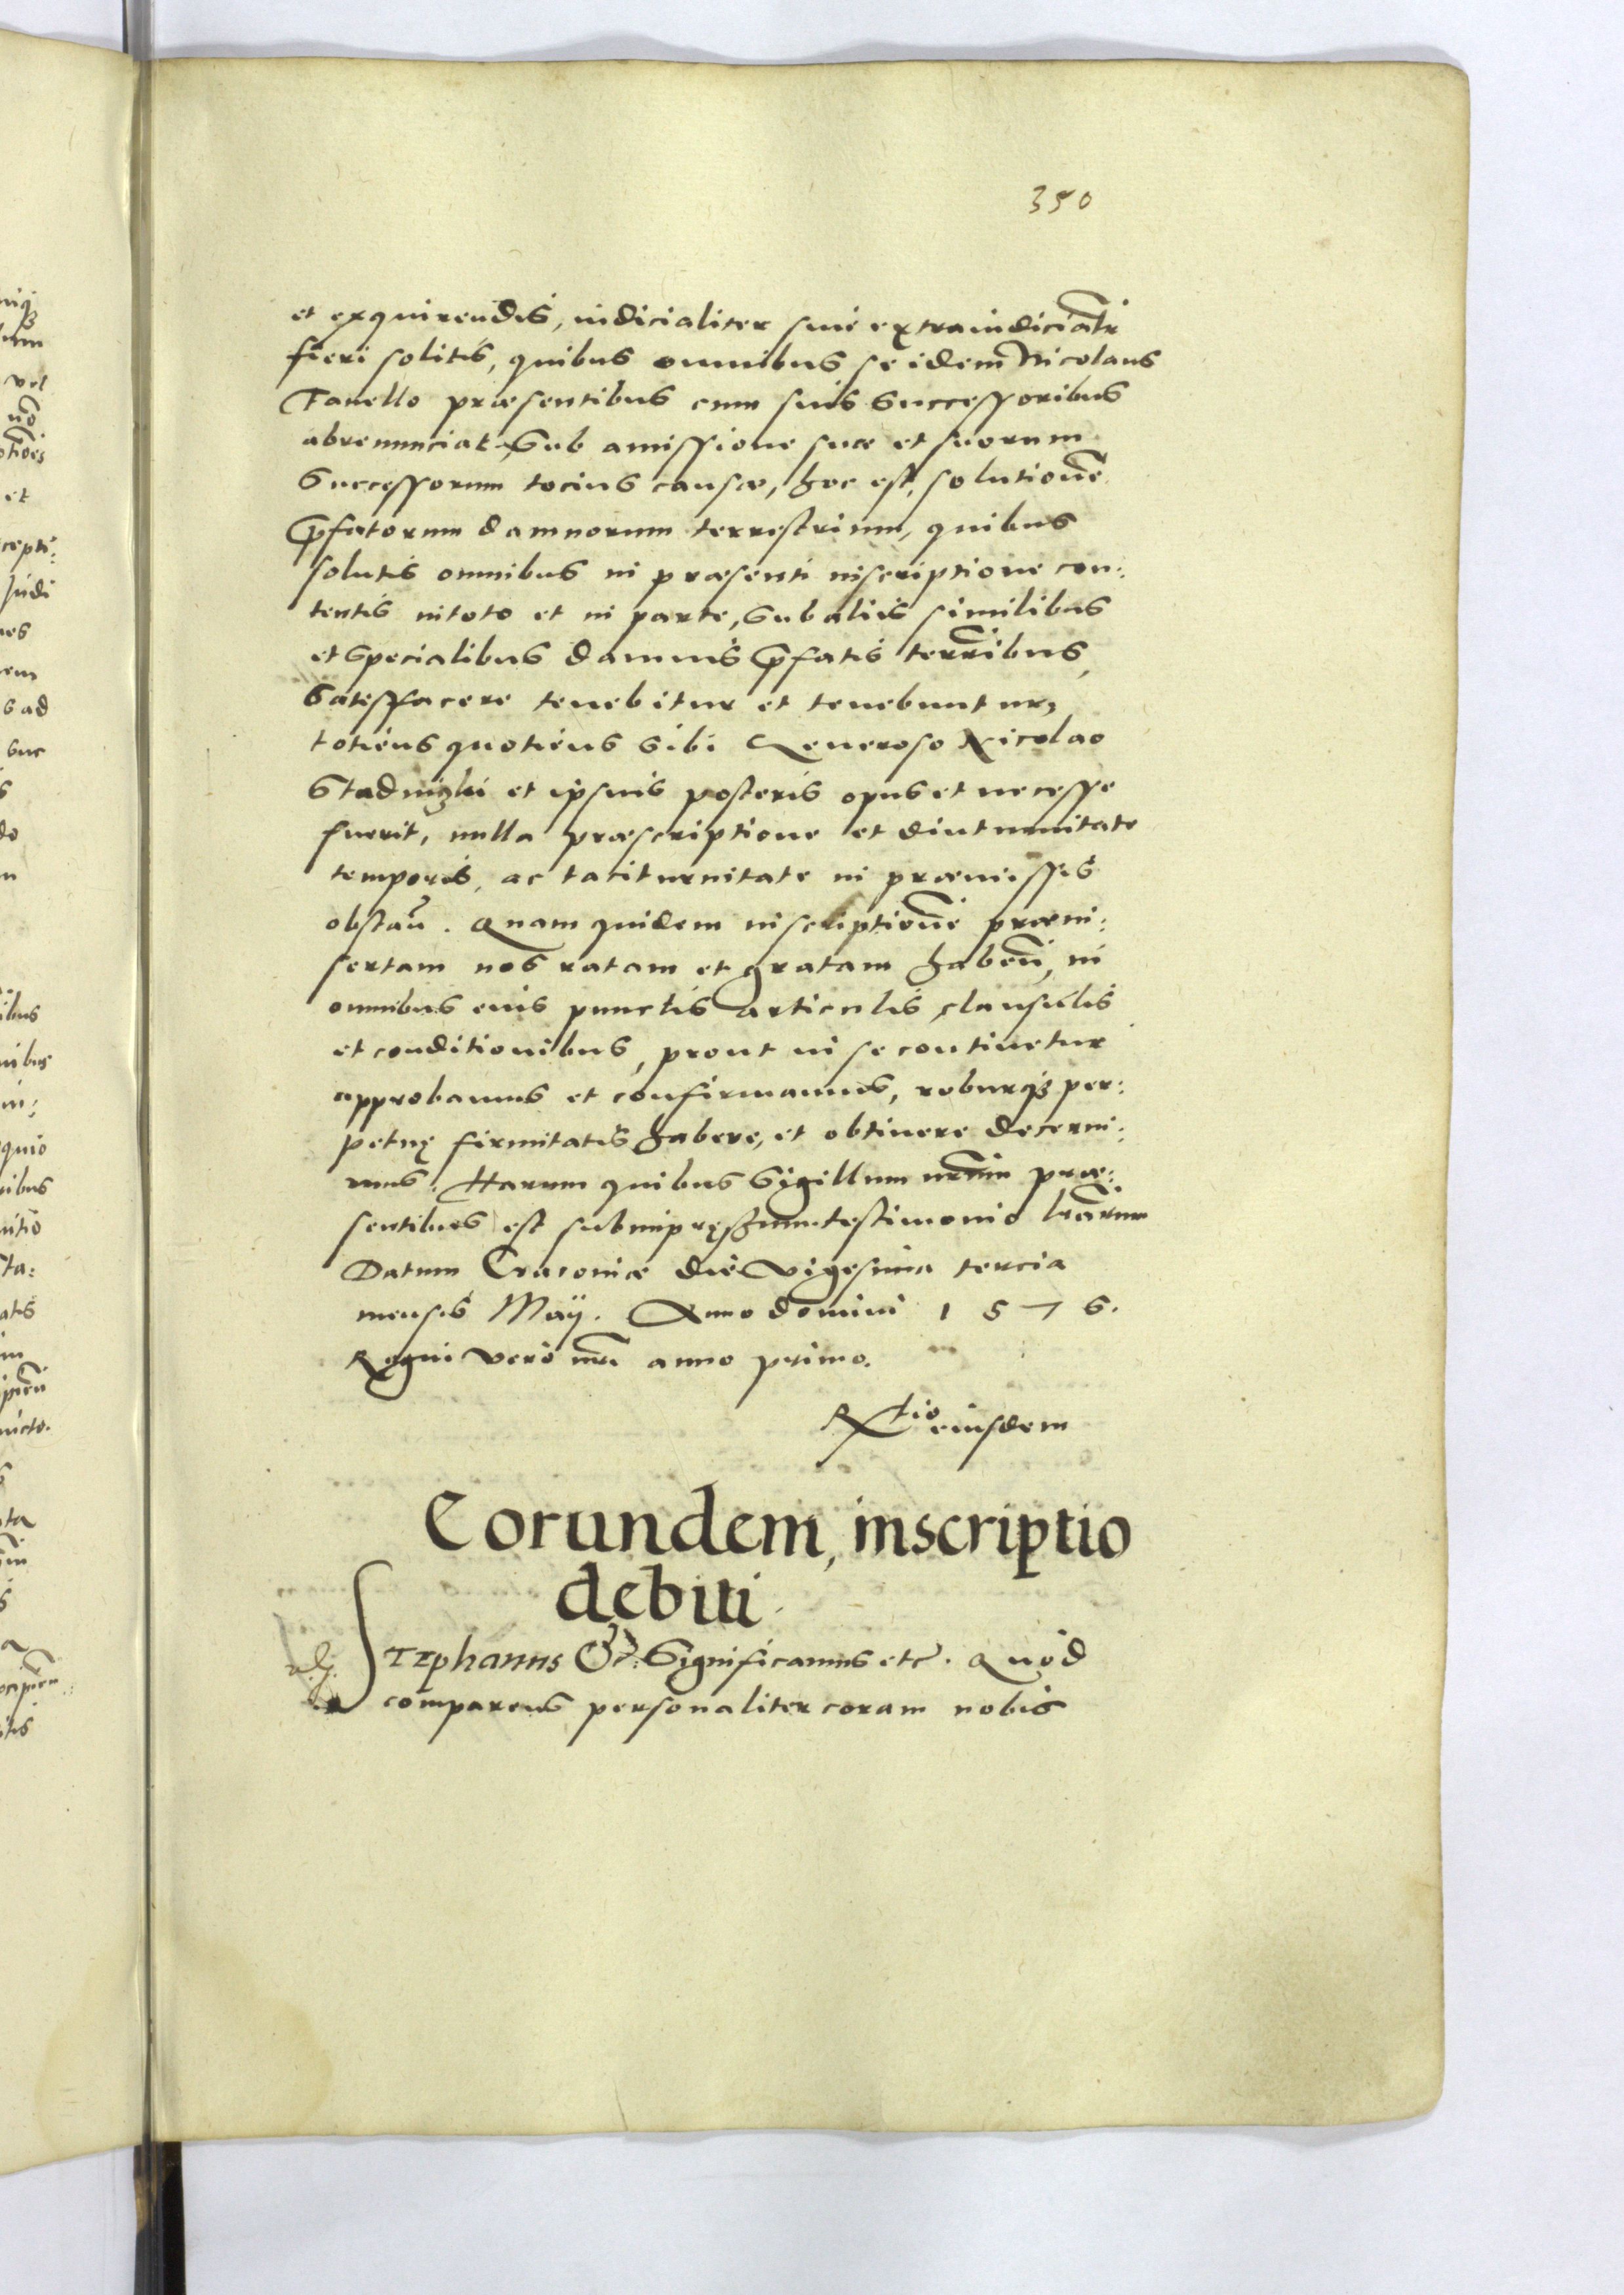 350
et exquirendis, iudicialiter siue extraiudicialr̃
fieri solitis, quibus omnibus se idem Nicolaus
Tauello præsentibus cum suis Successoribus
abrenunciat, Sub amissione suæ et suorum
Successorum tocius causæ, hoc est, solutione
p̃fatorum damnorum terrestrium, quibus
solutis omnibus in præsenti inscriptione con:
tentis in toto et in parte, Sub aliis similibus
et Specialibus damnis p̃fatis terrr̃ibus,
Satisfacere tenebitur et tenebuntur,
totiens quotiens Sibi Generoso Nicolao
Stadnizki et ipsius posteris opus et necesse
fuerit, nulla præscriptione et diuturnitate
temporis, ac taciturnitate in præmissis
obstañ. Quam quidem inscriptionẽ præin:
sertam nos ratam et gratam habeñ, in
omnibus eius punctis articulis, clausulis
et conditionibus, prout in se continetur
approbamus et confirmamus, roburq3 per:
petuę firmitatis habere, et obtinere decerni:
mus. Harum quibus Sigillum nrm̃ præ:
sentibus est subimpręssum. testimonio lr̃arum
Datum Cracouiæ die Vigesima tercia
mensis Maÿ. Anno domini 1576.
Regni vero nr̃i anno primo.
Rtio eiusdem
Eorundem, inscriptio
debiti
STEphanus &c: Significamus etc. Quod
comparens personaliter coram nobis